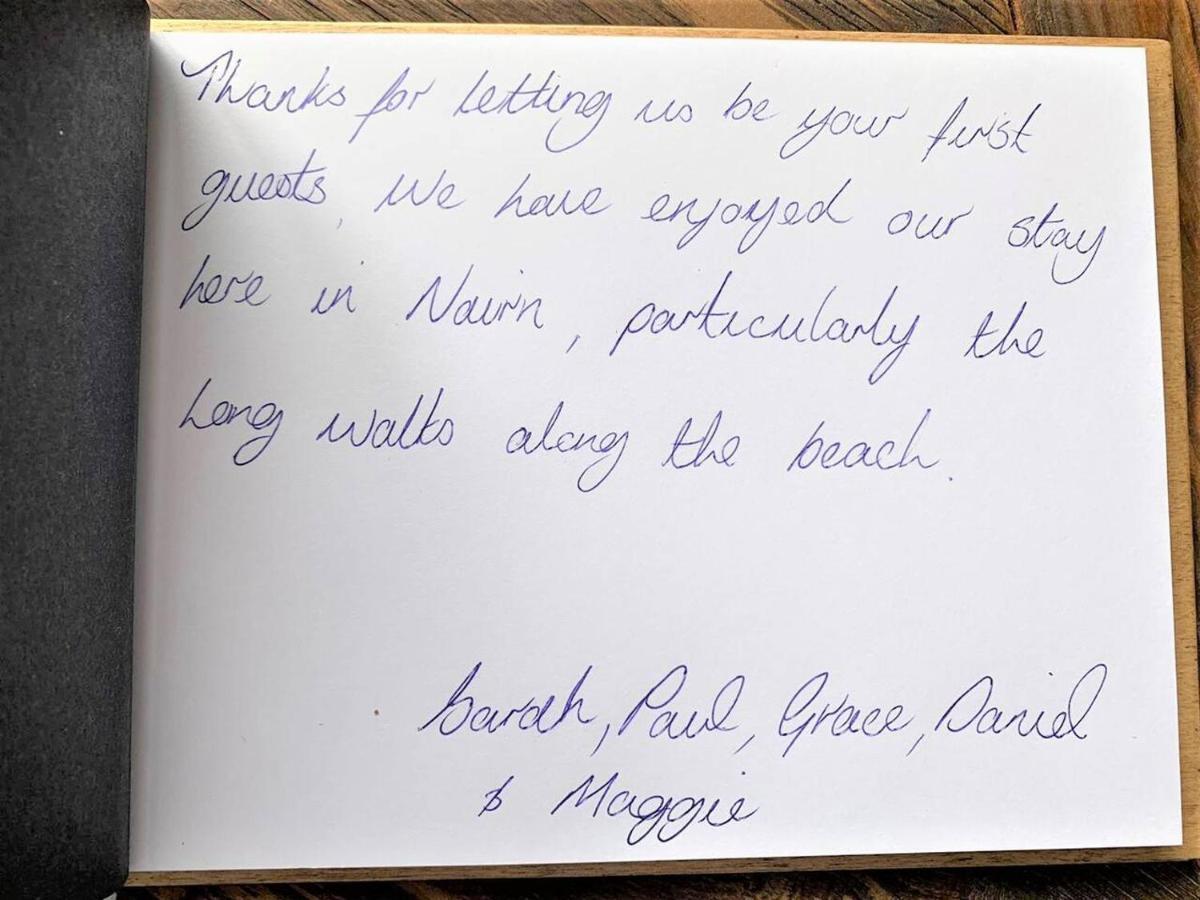 Thanks for letting us be your first
guests. We have enjoyed our stay
here in Nairn, particularly the
long walks along the beach.
Sarah, Paul, Grace, Daniel
& Maggie